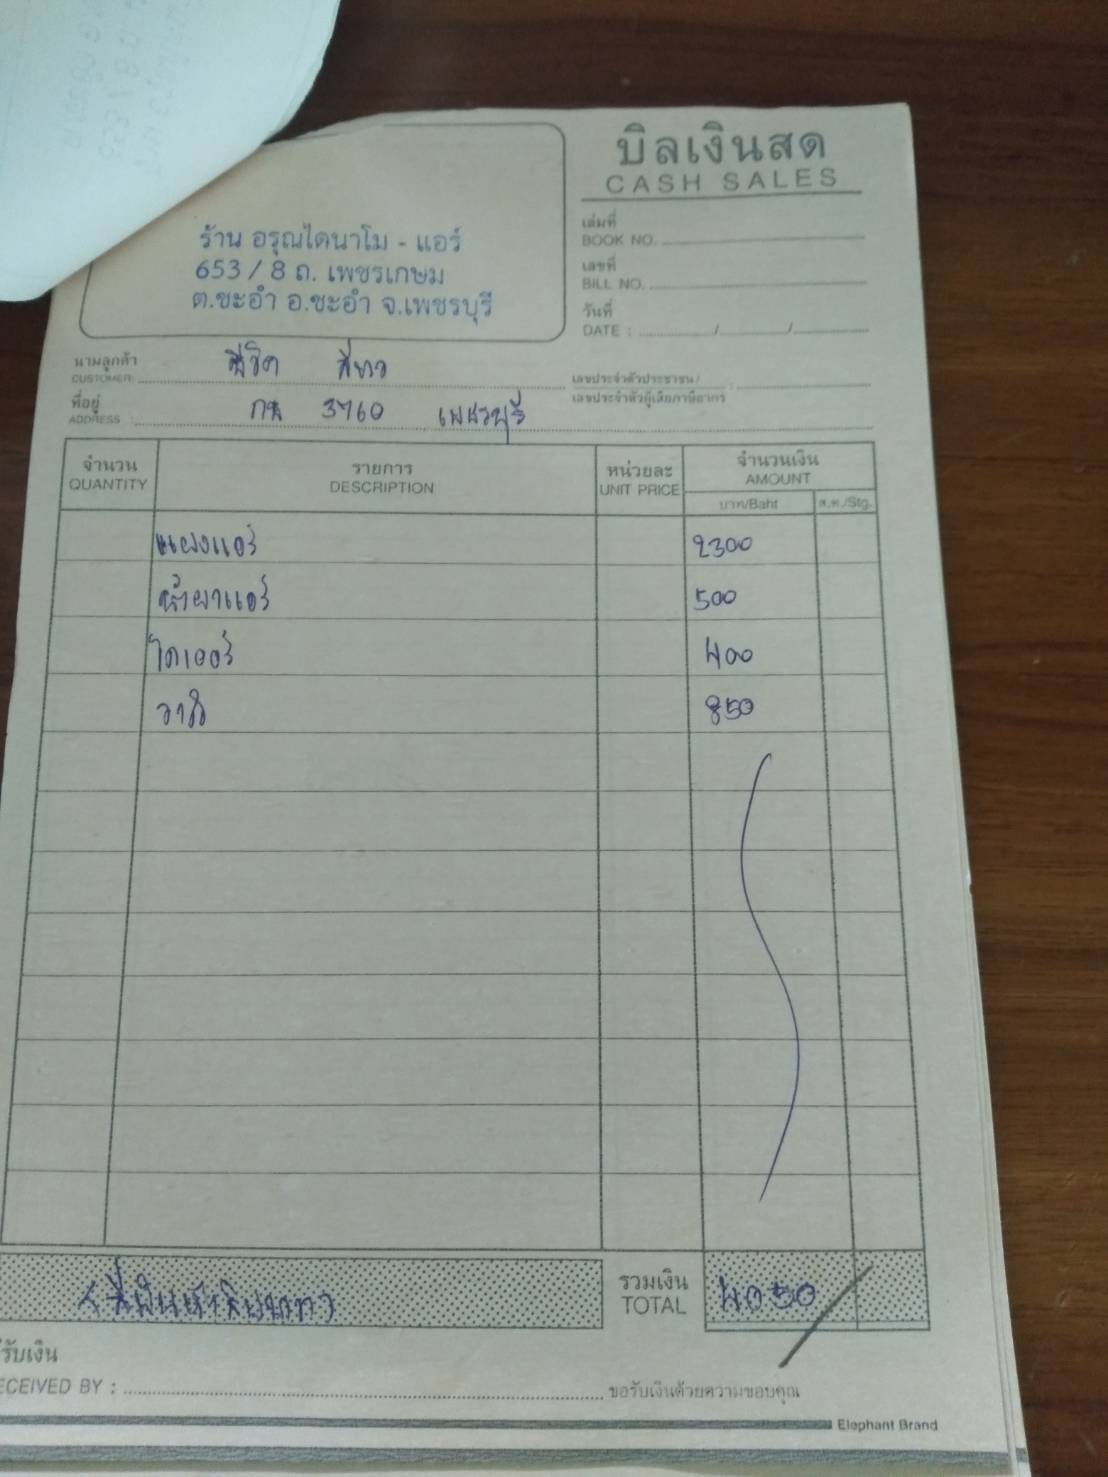 บิลเงินสด
CASH SALES
ร้าน อรุณไดนาโม - แอร์
653 / 8 ถ. เพชรเกษม
ต.ชะอำ อ.ชะอำ จ.เพชรบุรี
เล่มที่
BOOK NO.
เลขที่
BILL NO.
วันที่
DATE : / /
นามลูกค้า
CUSTOMER:
เลขประจำตัวประชาชน/ :
เลขประจำตัวผู้เสียภาษีอากร
ที่อยู่ 3760 เพชรบุรี
ADDRESS :
จำนวน รายการ หน่วยละ จำนวนเงิน
QUANTITY DESCRIPTION UNIT PRICE AMOUNT
บาท/Baht ส.ต./Stg.
แผงแอร์ 2300
น้ำยาแอร์ 500
ไดเออร์ 400
วาล์ว 850
สี่พันห้าสิบบาท
รวมเงิน 4050
TOTAL
รับเงิน
ECEIVED BY : ขอรับเงินด้วยความขอบคุณ
Elephant Brand